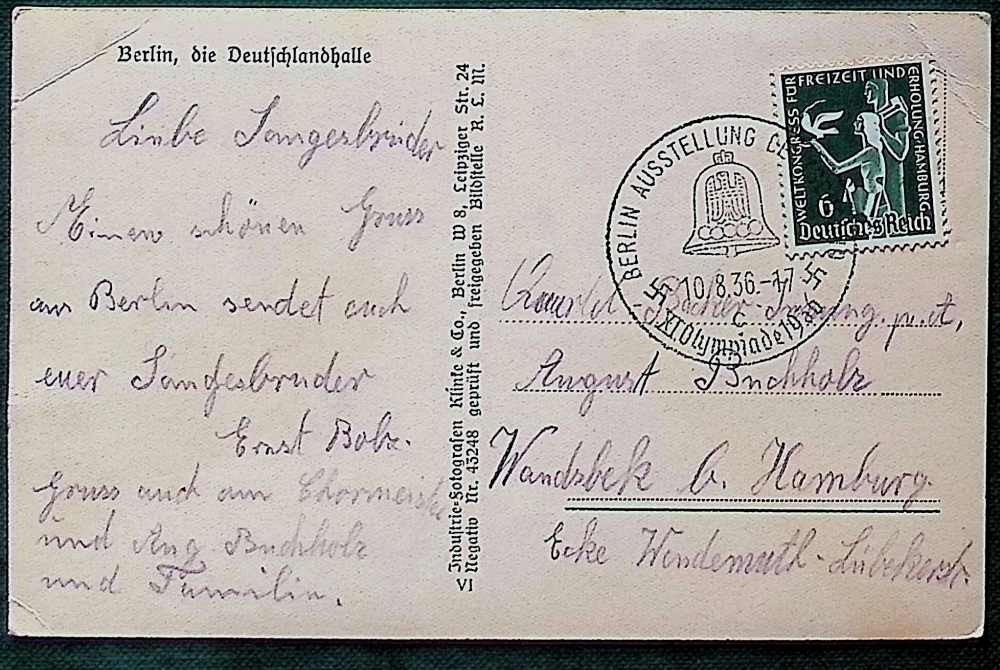 Berlin, die Deutschlandhalle
Liebe Sangesbrüder
Einen schönen Gruss
aus Berlin sendet auch
euer Sangesbruder
Ernst Bolz.
Gruss auch an Chormeister
und Aug. Buchholz
und Familin.
Industrie-Fotografen Klinke & Co., Berlin W 8, Leipziger Str. 24
VI Negativ Nr. 43248 geprüft und freigegeben Bildstelle R. L. M.
WELTKONGRESS FÜR FREIZEIT UND ERHOLUNG·HAMBURG
6
Deutsches Reich
BERLIN AUSSTELLUNG
10.8.36.-17
c
XI Olympiade 1936
Bäcker-Innung. p. A,
August Buchholz
Wandsbek b. Hamburg
Ecke Wendemuth-Lübekerst.